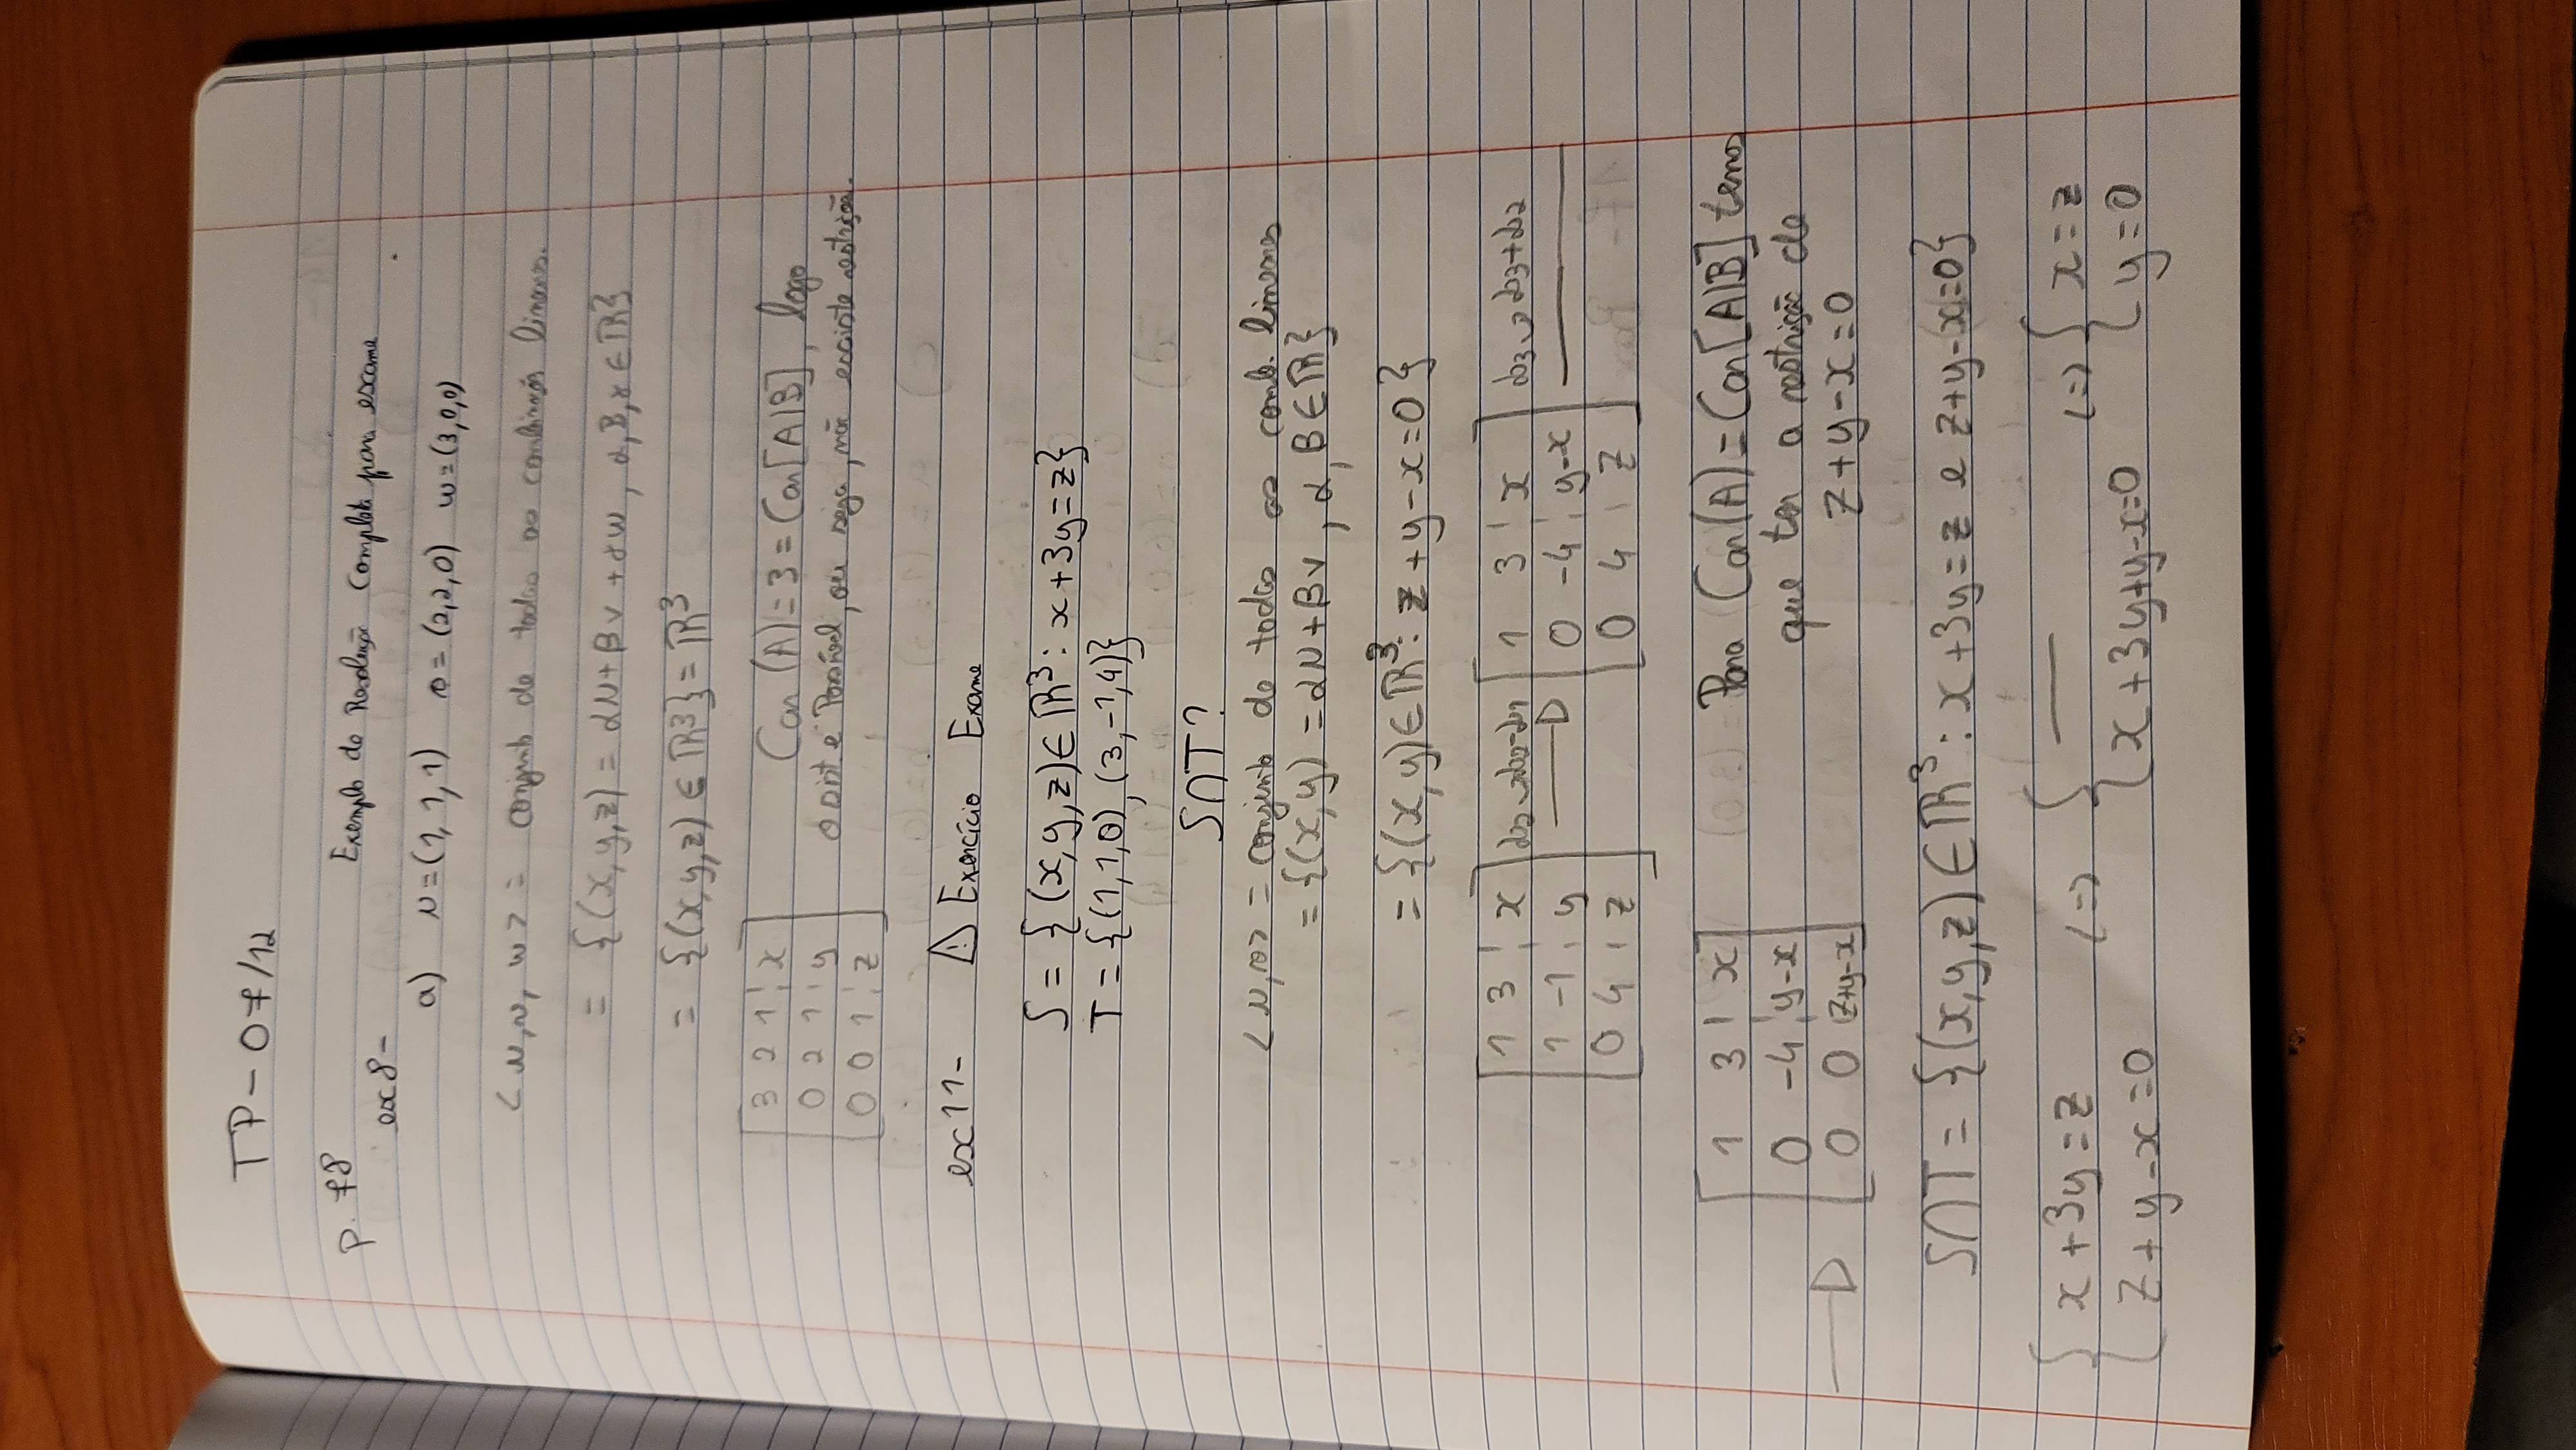 TP - 07/12
p. 78
Exemplo de Resolução Completa para exame
ex 8-
a) u = (1, 1, 1) v = (2,2,0) w = (3,0,0)
<u,v, w> = conjunto de todas as combinações lineares.
= {(x,y,z) = αu + βv + γw, α,β,γ ∈ ℝ}
= {(x,y,z) ∈ ℝ³} = ℝ³
[3 2 1 ¦ x]
[0 2 1 ¦ y]
[0 0 1 ¦ z]
Car (A) = 3 = Car [A|B], logo
o sist é Possível, ou seja, não existe restrição.
ex 11- ⚠ Exercício Exame
S = {(x,y,z) ∈ ℝ³ : x + 3y = z}
T = {(1,1,0), (3,-1,4)}
S∩T?
<u,v> = conjunto de todas as comb. lineares
= {(x,y) = αu + βv, α, β ∈ ℝ}
= {(x,y) ∈ ℝ³ : z + y - x = 0}
[1 3 ¦ x]
[1 -1 ¦ y]
[0 4 ¦ z]
[1 3 ¦ x]
[0 -4 ¦ y-x]
[0 4 ¦ z]
[1 3 ¦ x]
[0 -4 ¦ y-x]
[0 0 ¦ z+y-x]
Para Car(A) = Car [A|B] temos
que ter a restrição de
z + y - x = 0
S∩T = {(x,y,z) ∈ ℝ³ : x + 3y = z e z+y-x=0}
{ x + 3y = z (=) { — (=) { x = z
{ z + y - x = 0 { x + 3y + y - x = 0 { y = 0